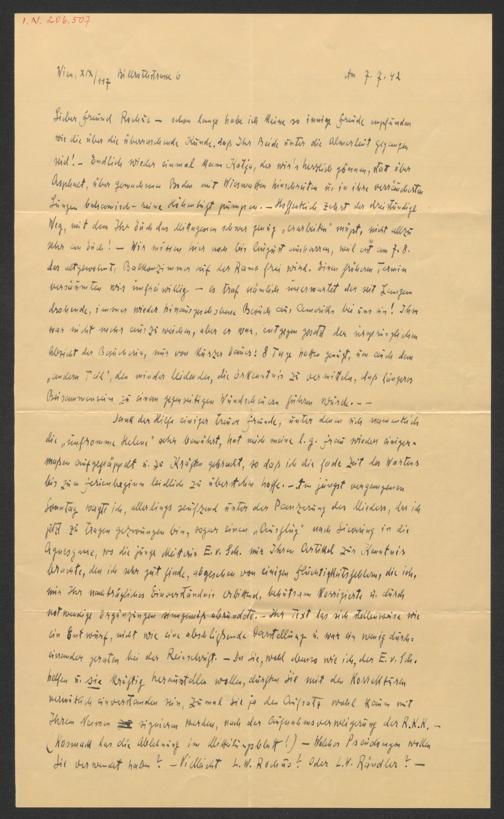 I.N. 206.507
Wien, XIX/117 Billrothstrasse 6 Am 7.7.42
Lieber Freund Rochus – schon lange habe ich keine so innige Freude empfunden
wie die über die überraschende Kunde, daß Ihr Beide unter die gegangen
seid! – Endlich wieder einmal kann Katja, der wir's herzlich gönnen, statt über
Asphalt, über gewachsenen Boden mit Wiesenwegen u. in ihre verkümmerten
Lungen balsamisch-reine pumpen. – Hoffentlich zehrt der dreistündige
Weg, mit dem Ihr Euch das Mittagessen schwer genug „erarbeiten" müßt, nicht allzu
sehr an Euch! – Wir müssen hier noch bis August ausharren, weil erst am 7.8.
das altgewohnte Balkonzimmer auf der Rams frei wird. Einen früheren Termin
versäumten wir unfreiwillig – es traf nämlich unerwartet der seit Langem
drohende, immer wieder hinausgeschobene Besuch aus bei uns ein! Ihm
war nicht mehr auszuweichen, aber er war, entgegen der ursprünglichen
Absicht der Besucherin, nur von kurzer Dauer: 8 Tage hatten genügt, um auch dem
„andern Teil", den minder leidenden, die Erkenntnis zu vermitteln, daß längeres
Beisammensein zu einem gegenseitigen führen würde. –
Dank der Hilfe einiger treuer Freunde, unter denen sich namentlich
die „unfromme Helene" sehr bewährt, hat mich meine l. g. Frau wieder einiger-
maßen aufgepäppelt u. zu Kräften gebracht, so daß ich die fade Zeit des Wartens
bis zum Ferienbeginn leidlich zu überstehen hoffe. – Am jüngst vergangenen
Sonntag wagte ich, allerdings seufzend unter der Panzerung des Mieders, das ich
jetzt zu tragen gezwungen bin, sogar einen „Ausflug" nach Sievering in die
Agnesgasse, wo die junge E. v. Sch. mir Ihren Artikel zur Kenntnis
brachte, den ich sehr gut finde, abgesehen von einigen Flüchtigkeitsfehlern, die ich,
mir Ihr nachträgliches Einverständnis erbittend, behutsam korrigierte u. durch
notwendige Ergänzungen abrundete. – Ihr Text las sich stellenweise wie
ein Entwurf, nicht wie eine abschließende Darstellung u. war ein wenig durch-
einander geraten bei der Reinschrift. – Da Sie, wohl ebenso wie ich, der E. v. Sch.
helfen u. sie kräftig herausstellen wollen, dürften Sie mit den Korrekturen
vermutlich einverstanden sein, zumal Sie ja den Aufsatz wohl kaum mit
Ihrem Namen signieren werden, nach der Aufnahmsverweigerung der R.K.K. –
(Kosmack las die Ablehnung im Mitteilungsblatt!) – Welches Pseudonym wollen
Sie verwendet haben? – Vielleicht L. W. Rochus? Oder L. W. Rändler? –